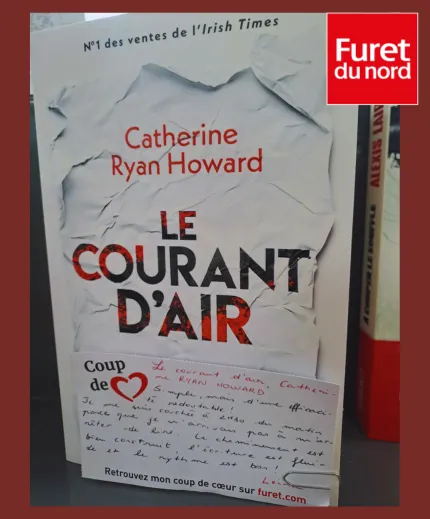 Furet
du nord
N°1 des ventes de l'Irish Times
Catherine
Ryan Howard
LE
COURANT
D'AIR
ALEXIS
À COUPER LE SOUFFLE
Coup
de
Le courant d'air, Catheri-
ne RYAN HOWARD
Simple, mais d'une efficaci-
té redoutable !
Je me suis couchée à 2h30 du matin
parce que je n'arrivais pas à m'ar-
rêter de lire. Le cheminement est
bien construit l'écriture est flui-
de et le rythme est bon !
Retrouvez mon coup de cœur sur furet.com